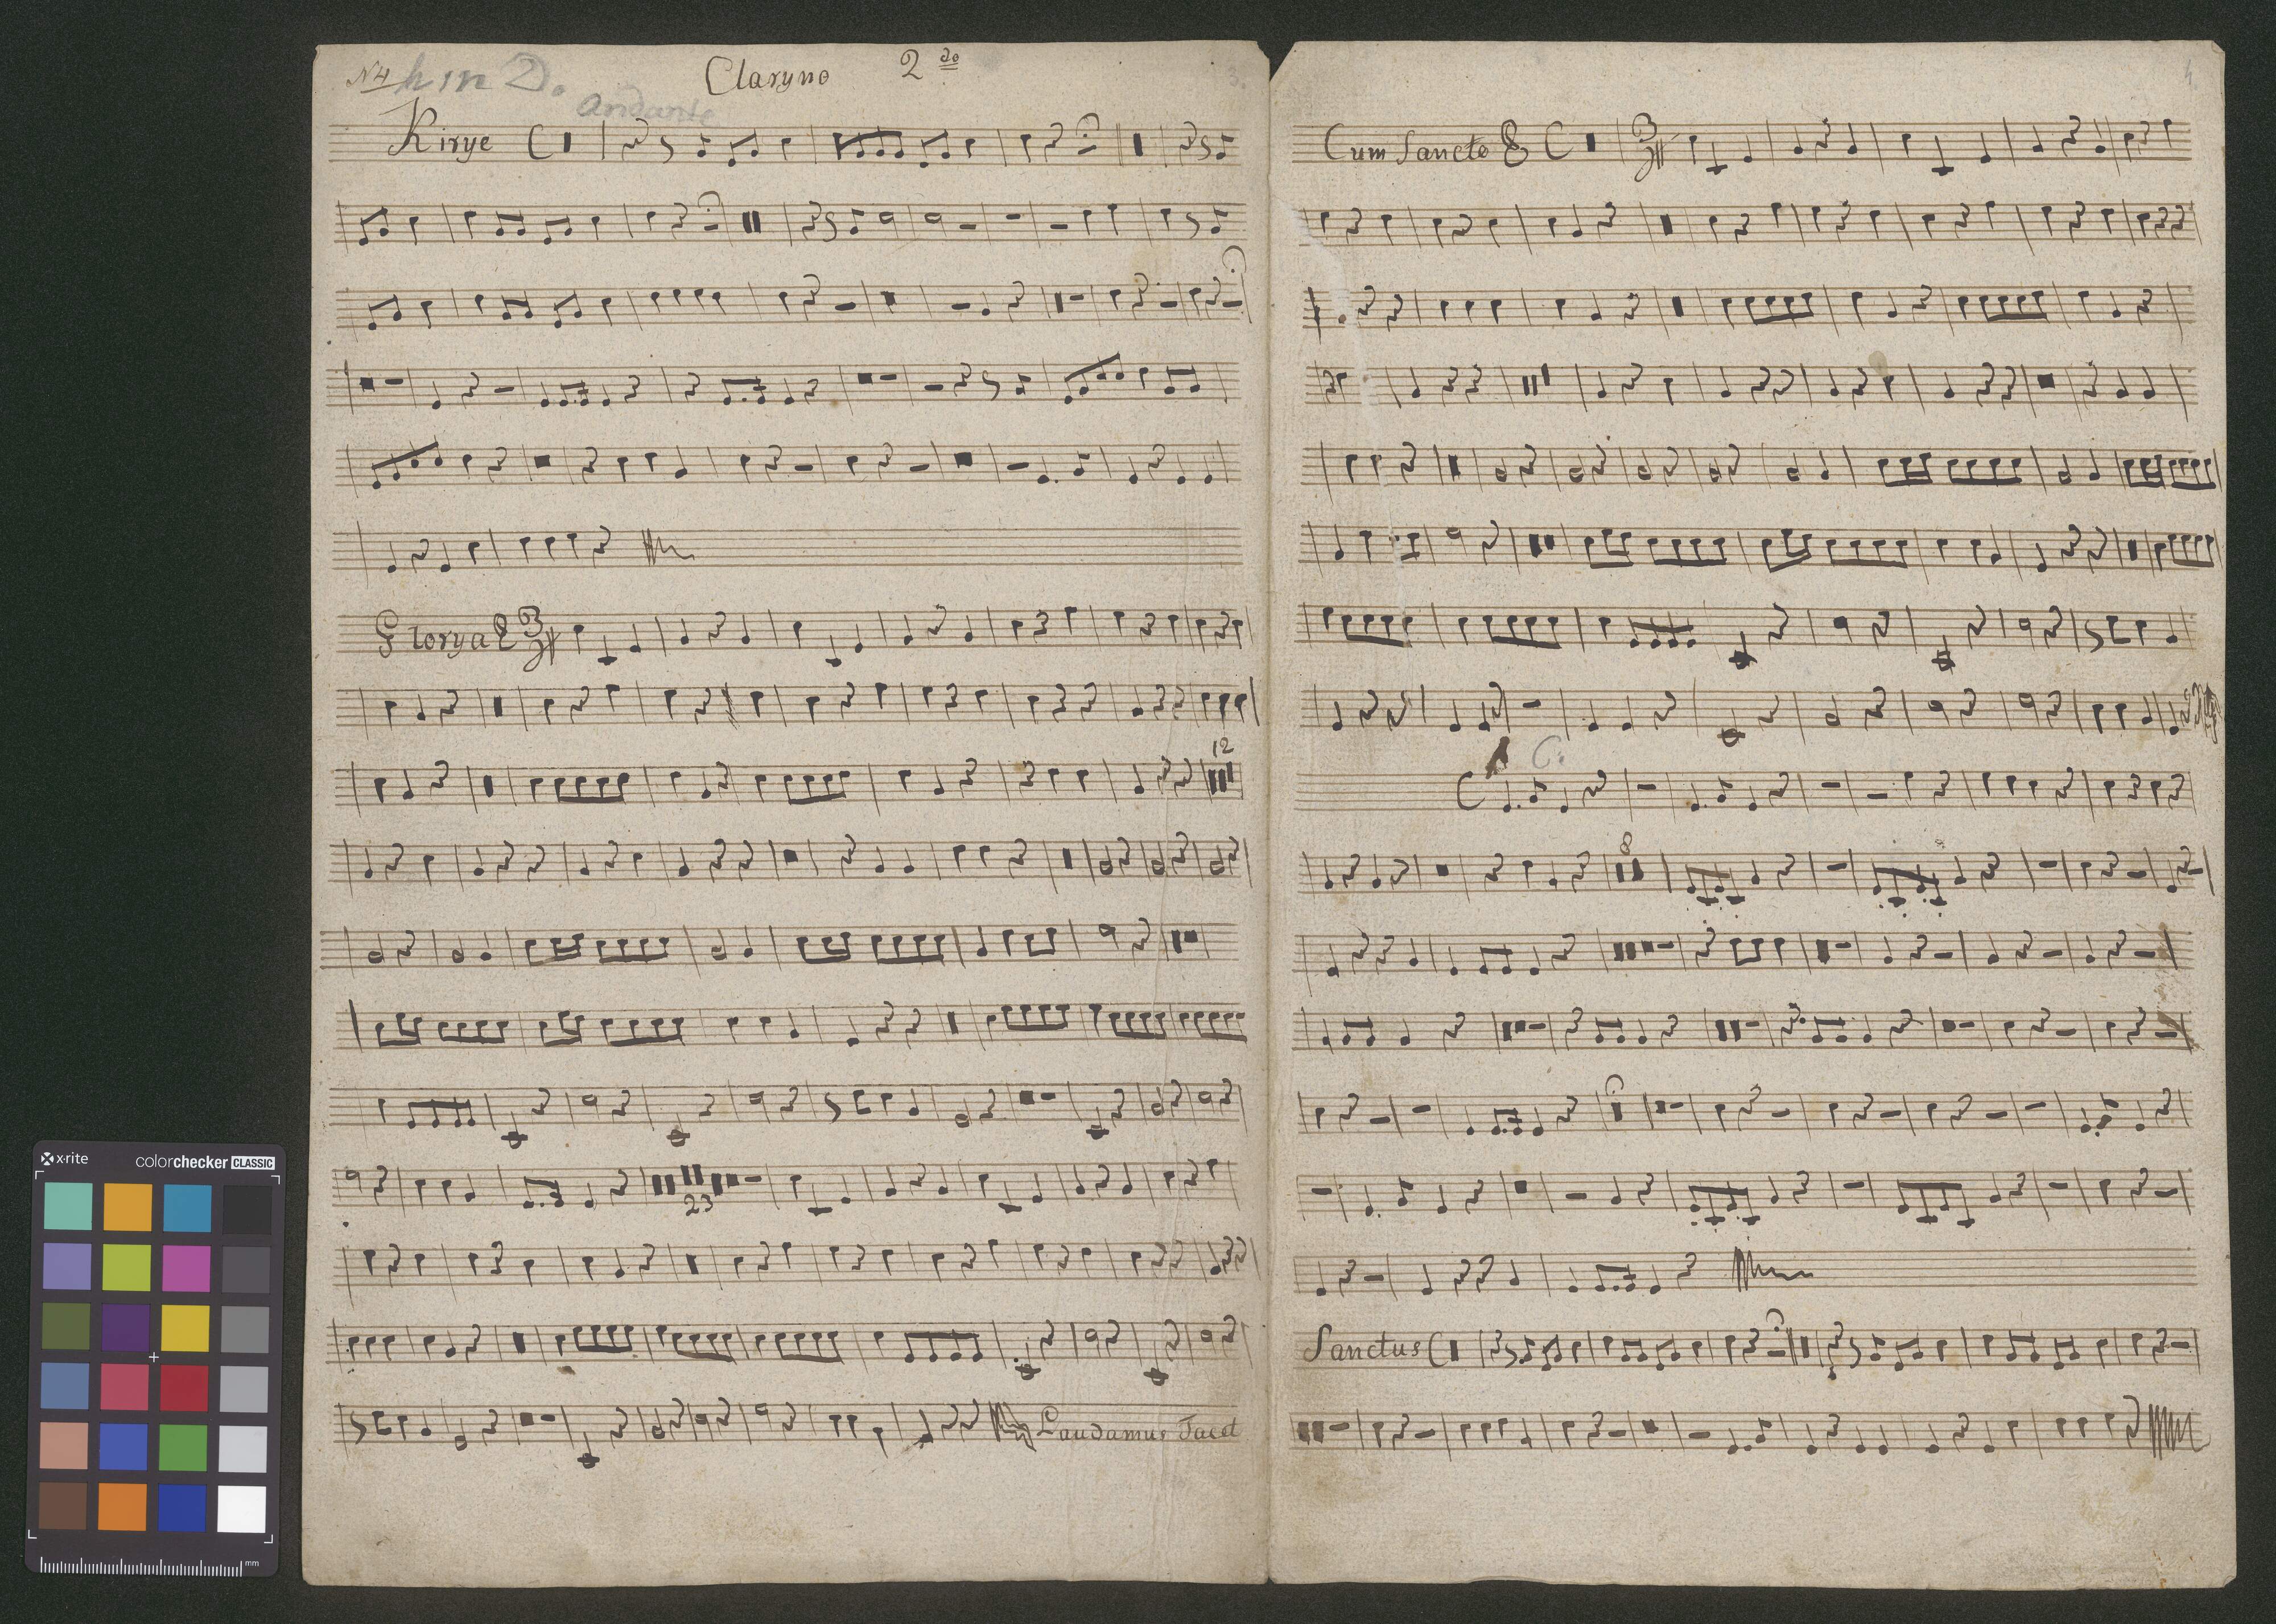 N4 h in D. Claryno 2do 3.
Andante
Kirye C
Glorya 3
12
23
Laudamus Tacet
4
Cum Sancto C 3
C C:
8
Sanctus C
x-rite colorchecker CLASSIC
mm